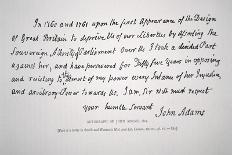 In 1760 and 1761 upon the first Appearance of the Design
of Great Britain to deprive Us of our Liberties by asserting the
Sovereign Authority of Parliament over Us I took a decided Part
against her, and have persevered for Fifty five Years in opposing
and resisting to the utmost of my power every Instance of her Injustice,
and arbitrary Power towards Us. I am, Sir with much respect
your humble Servant
John Adams
AUTOGRAPHY OF JOHN ADAMS